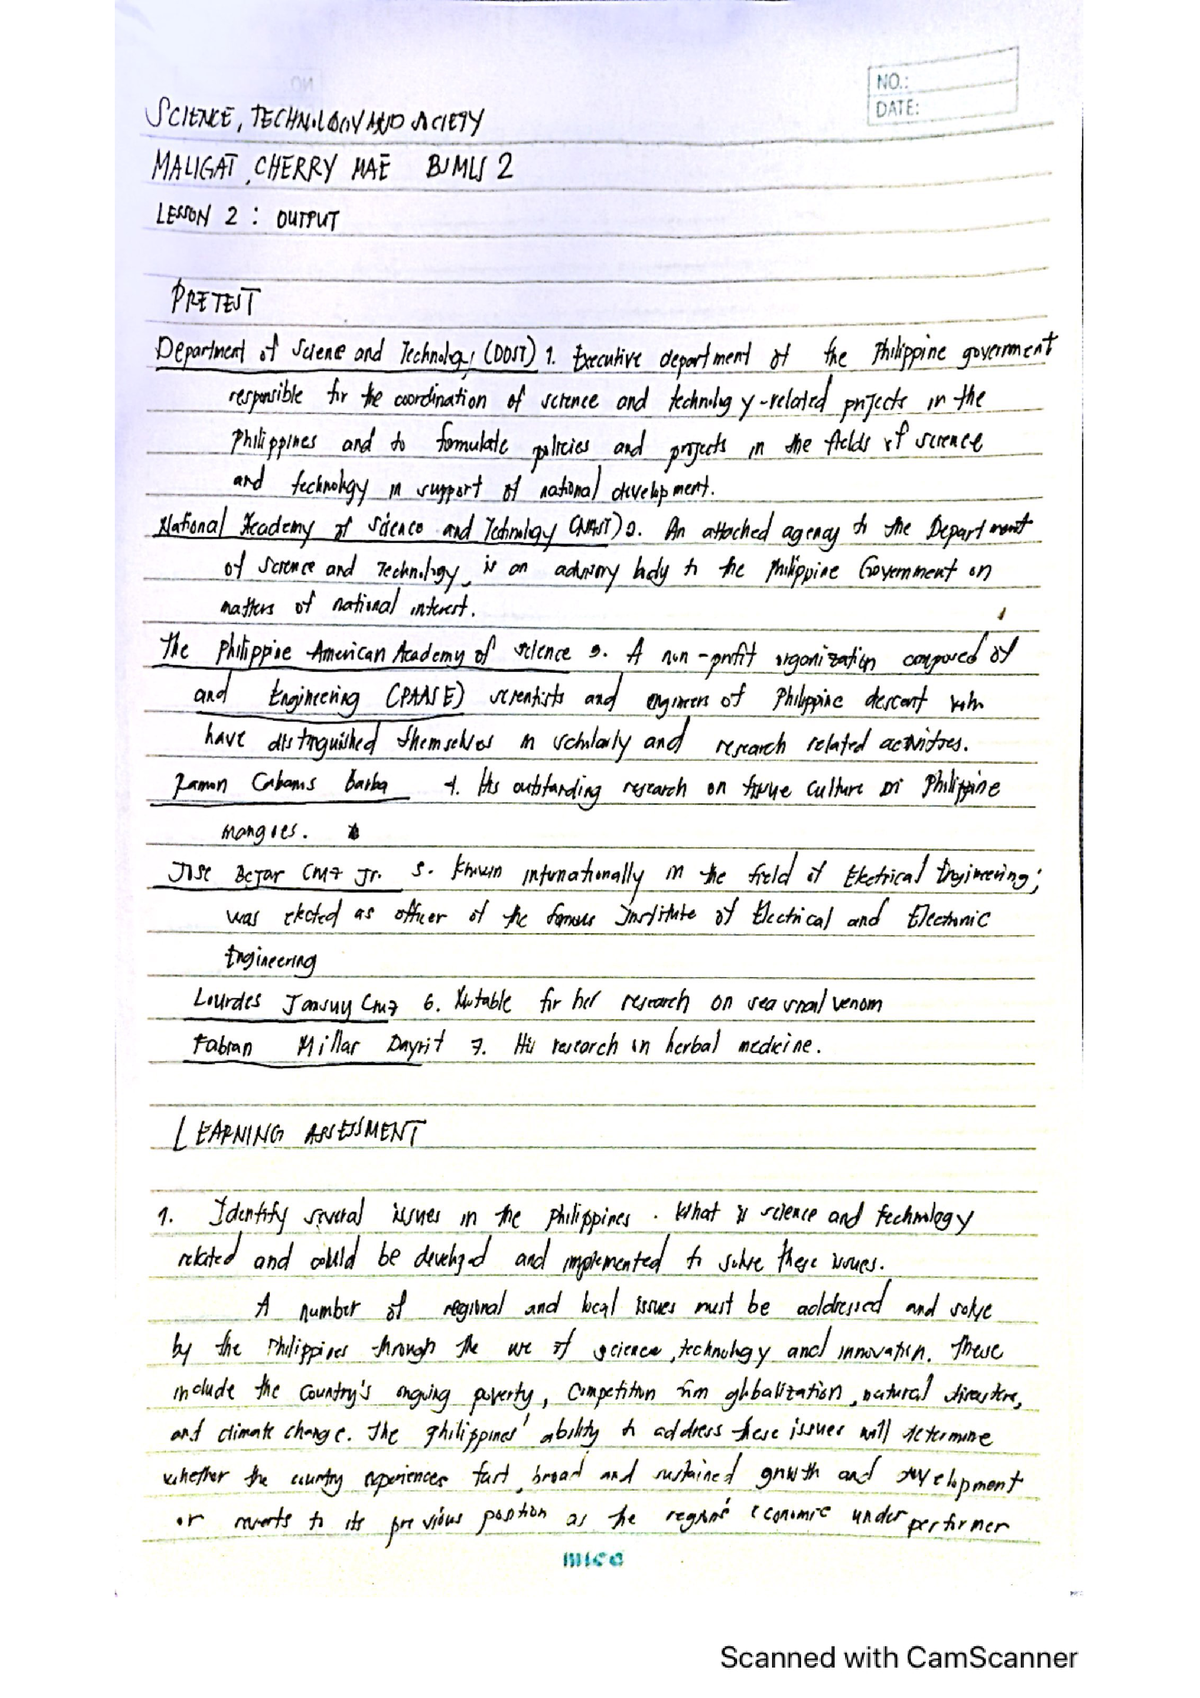 NO.:
DATE:
SCIENCE, TECHNOLOGY AND SOCIETY
MALIGAT, CHERRY MAE BSMLS 2
LESSON 2 : OUTPUT
PRETEST
Department of Sciene and Technology (DOST) 1. Executive department of the Philippine government
responsible for the coordination of science and technology-related projects in the
Philippines and to formulate policies and projects in the fields of science
and technology in support of national development.
National Academy of Science and Technology (NAST) 2. An attached agency to the Department
of Science and Technology, is an advisory body to the Philippine Government on
matters of national interest.
The Philippine American Academy of science 3. A non-profit organization composed of
and Engineering (PAASE) scientists and engineers of Philippine descent who
have distinguished themselves in scholarly and research related activities.
Ramon Cabanos Barba 4. His outstanding research on tissue culture in Philippine
mangoes.
Jose Bejar Cruz Jr. 5. Known internationally in the field of Electrical Engineering;
was elected as officer of the famous Institute of Electrical and Electronic
Engineering
Lourdes Jansuy Cruz 6. Notable for her research on sea snail venom
Fabian Millar Dayrit 7. His research on herbal medicine.
LEARNING ASSESSMENT
1. Identify several issues in the Philippines. What is science and technology
related and could be developed and implemented to solve these issues.
A number of regional and local issues must be addressed and solve
by the Philippines through the use of science, technology and innovation. These
include the country's ongoing poverty, competition from globalization, natural disasters,
and climate change. The Philippines' ability to address these issues will determine
whether the country experiences fast, broad and sustained growth and development
or reverts to its previous position as the region's economic underperformer
mica
Scanned with CamScanner